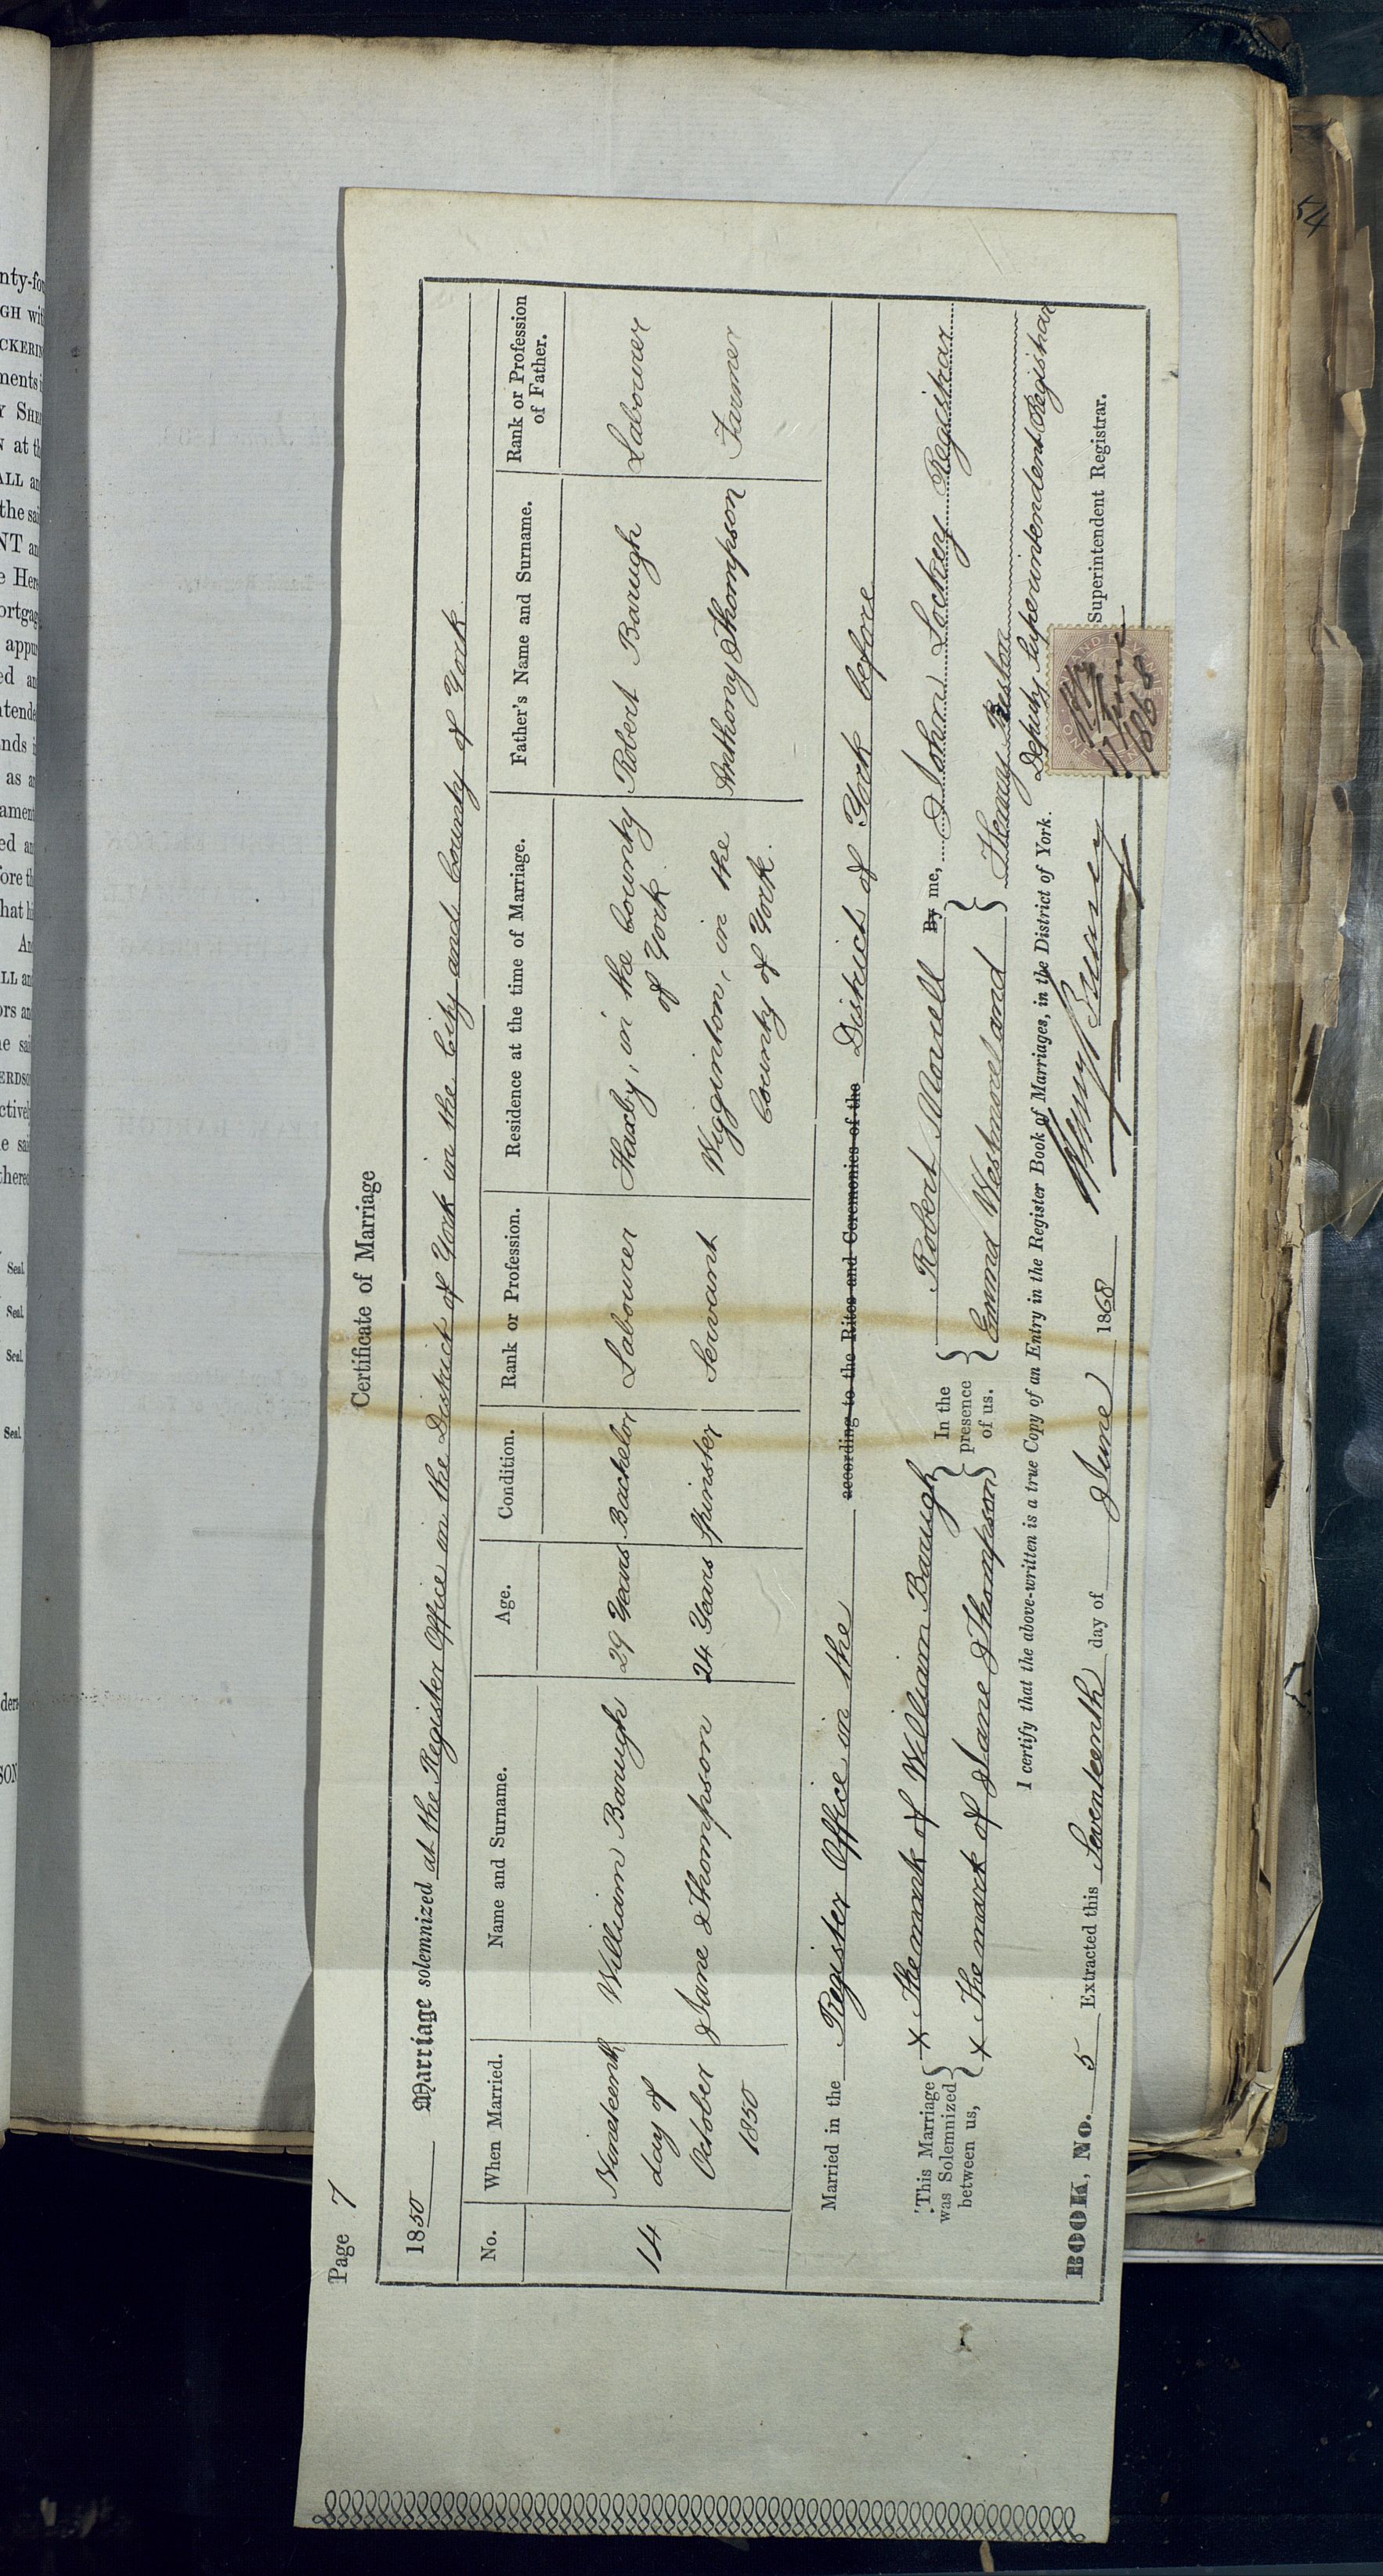 Page 7
Certificate of Marriage
1850 Marriage solemnized at the Register Office in the District of York in the City and County of York
No. When Married. Name and Surname. Age. Condition. Rank or Profession. Residence at the time of Marriage. Father's Name and Surname. Rank or Profession of Father.
14
Nineteenth
day of
October
1850
William Barugh 29 Years Bachelor Labourer Haxby, in the County of York Robert Barugh Labourer
Jane Thompson 24 Years Spinster Servant Wigginton, in the County of York. Anthony Thompson Farmer
Married in the Register Office in the according to the Rites and Ceremonies of the District of York before
This Marriage
was Solemnized
between us,
x The mark of William Barugh
x The mark of Jane Thompson
In the
presence
of us.
Robert Morell
Emma Westmoreland
By me, John Lockey Registrar
Henry
Deputy Superintendent Registrar
I certify that the above-written is a true Copy of an Entry in the Register Book of Marriages, in the District of York.
BOOK, No. 5 Extracted this Seventeenth day of June 1868 Superintendent Registrar.
17
June
1868
54
nty-fo
GH wit
CKERIN
ments i
Y SHE
N at th
ALL an
the sai
NT an
e Her
ortgag
appu
ed an
ntende
nds i
as a
ament
ed an
fore th
hat h
An
LL an
ors an
e sai
ERDSO
ctivel
e sai
thereo
Seal.
Seal.
Seal.
Seal.
ders
SON